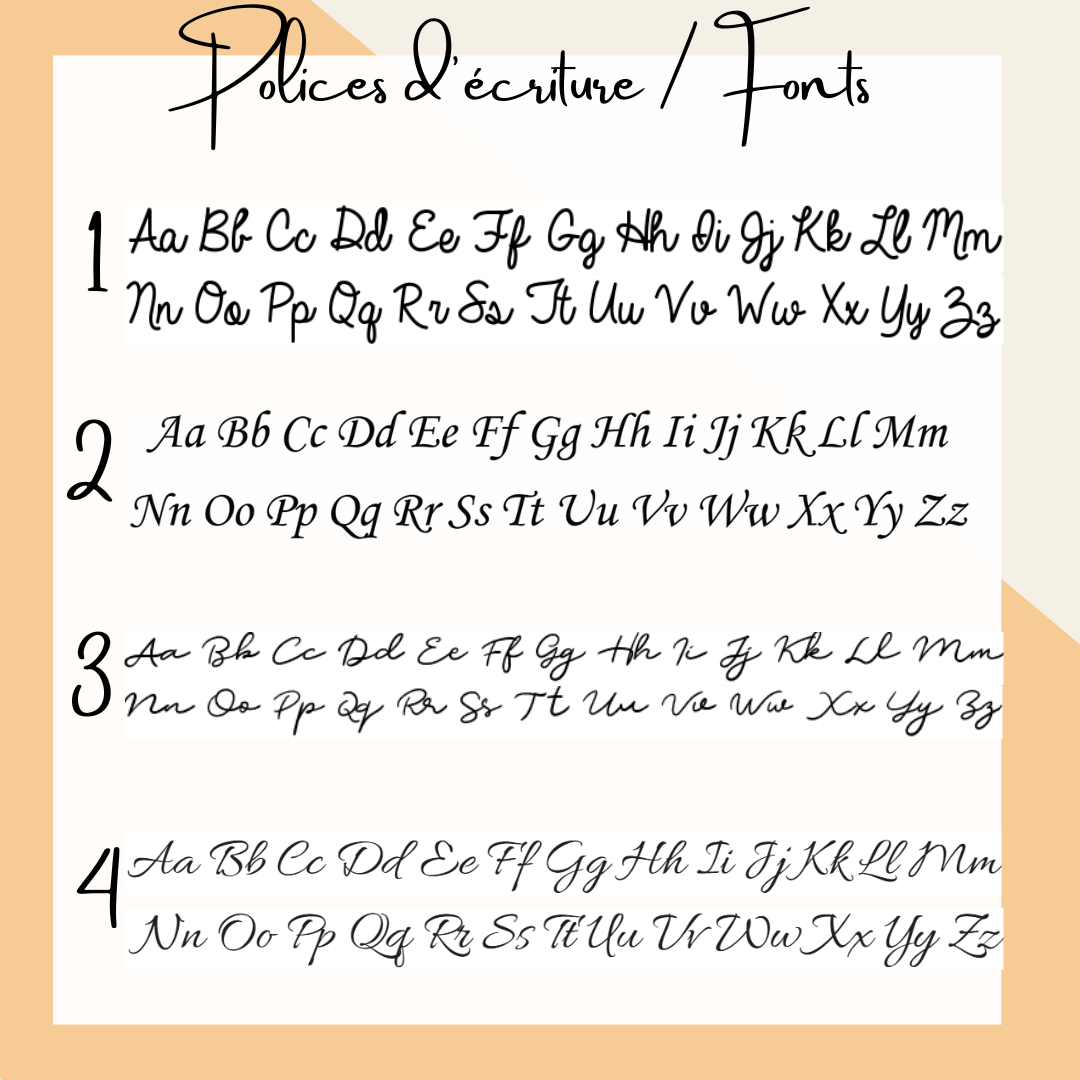 Polices d'écriture / Fonts
1
Aa Bb Cc Dd Ee Ff Gg Hh Ii Jj Kk Ll Mm
Nn Oo Pp Qq Rr Ss Tt Uu Vv Ww Xx Yy Zz
2
Aa Bb Cc Dd Ee Ff Gg Hh Ii Jj Kk Ll Mm
Nn Oo Pp Qq Rr Ss Tt Uu Vv Ww Xx Yy Zz
3
Aa Bb Cc Dd Ee Ff Gg Hh Ii Jj Kk Ll Mm
Nn Oo Pp Qq Rr Ss Tt Uu Vv Ww Xx Yy Zz
4
Aa Bb Cc Dd Ee Ff Gg Hh Ii Jj Kk Ll Mm
Nn Oo Pp Qq Rr Ss Tt Uu Vv Ww Xx Yy Zz